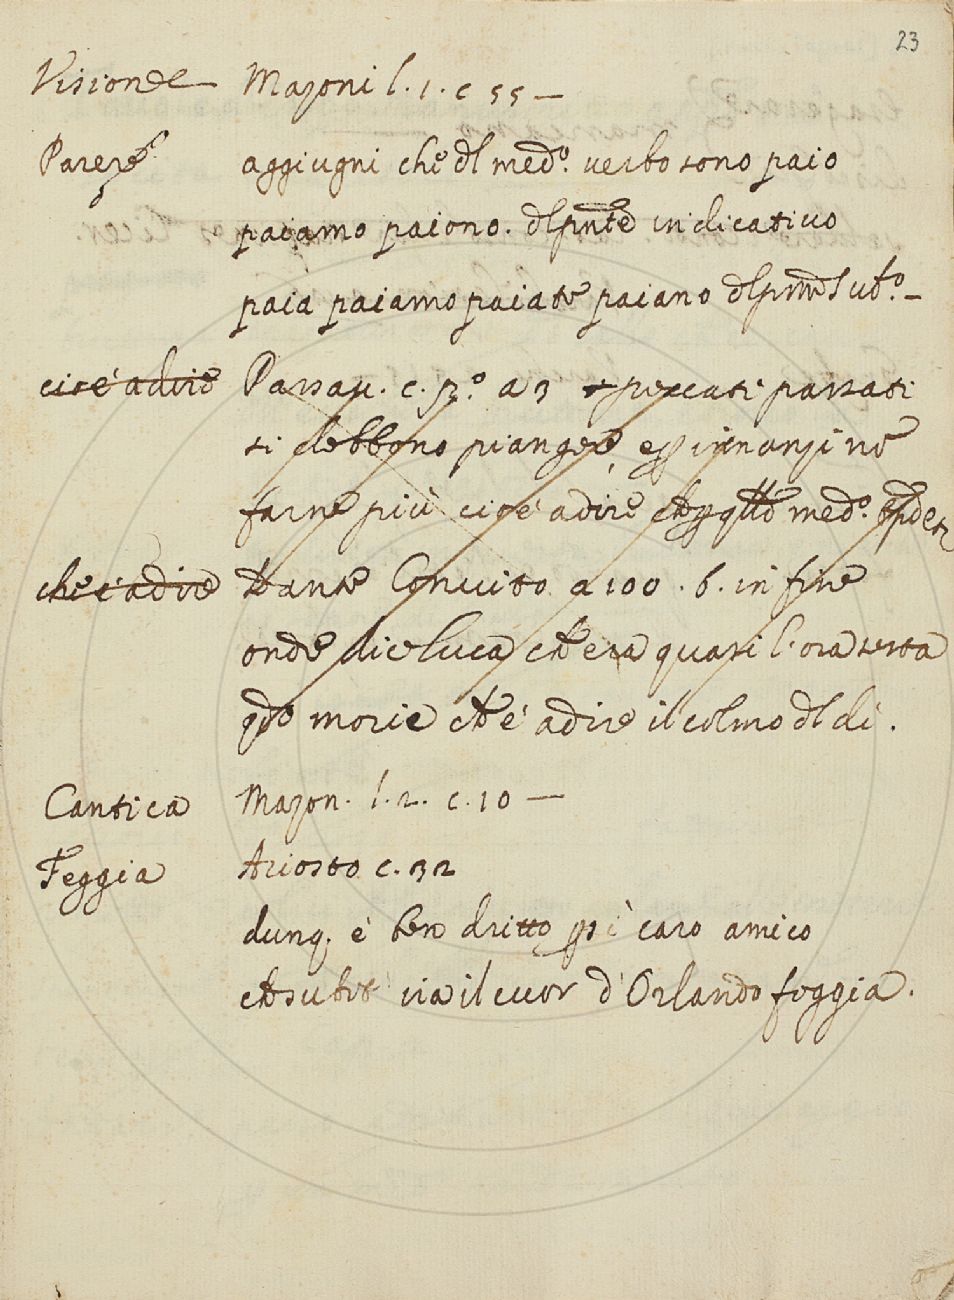 23
Visione Mazoni l. 1. c 55 —
Parere aggiugni che dl med.º verbo sono paio
paiamo paiono. dl pnte indicativo
paia paiamo paiate paiano dl pnte
cioè a dire Passav. c. 3.º a 3 peccati passati
si debbono piangere, innanzi nō
farne più cioè a dire med.º
che è a dire Dante Convito a 100 . b. in fine
onde dice Luca che era quasi l'ora sesta
qdo morie che è a dire il colmo dl dì.
Cantica Mazon. l. 2. c. 10 —
Feggia Ariosto c. 32
dunq. è ben dritto caro amico
via il cuor d'Orlando foggia.